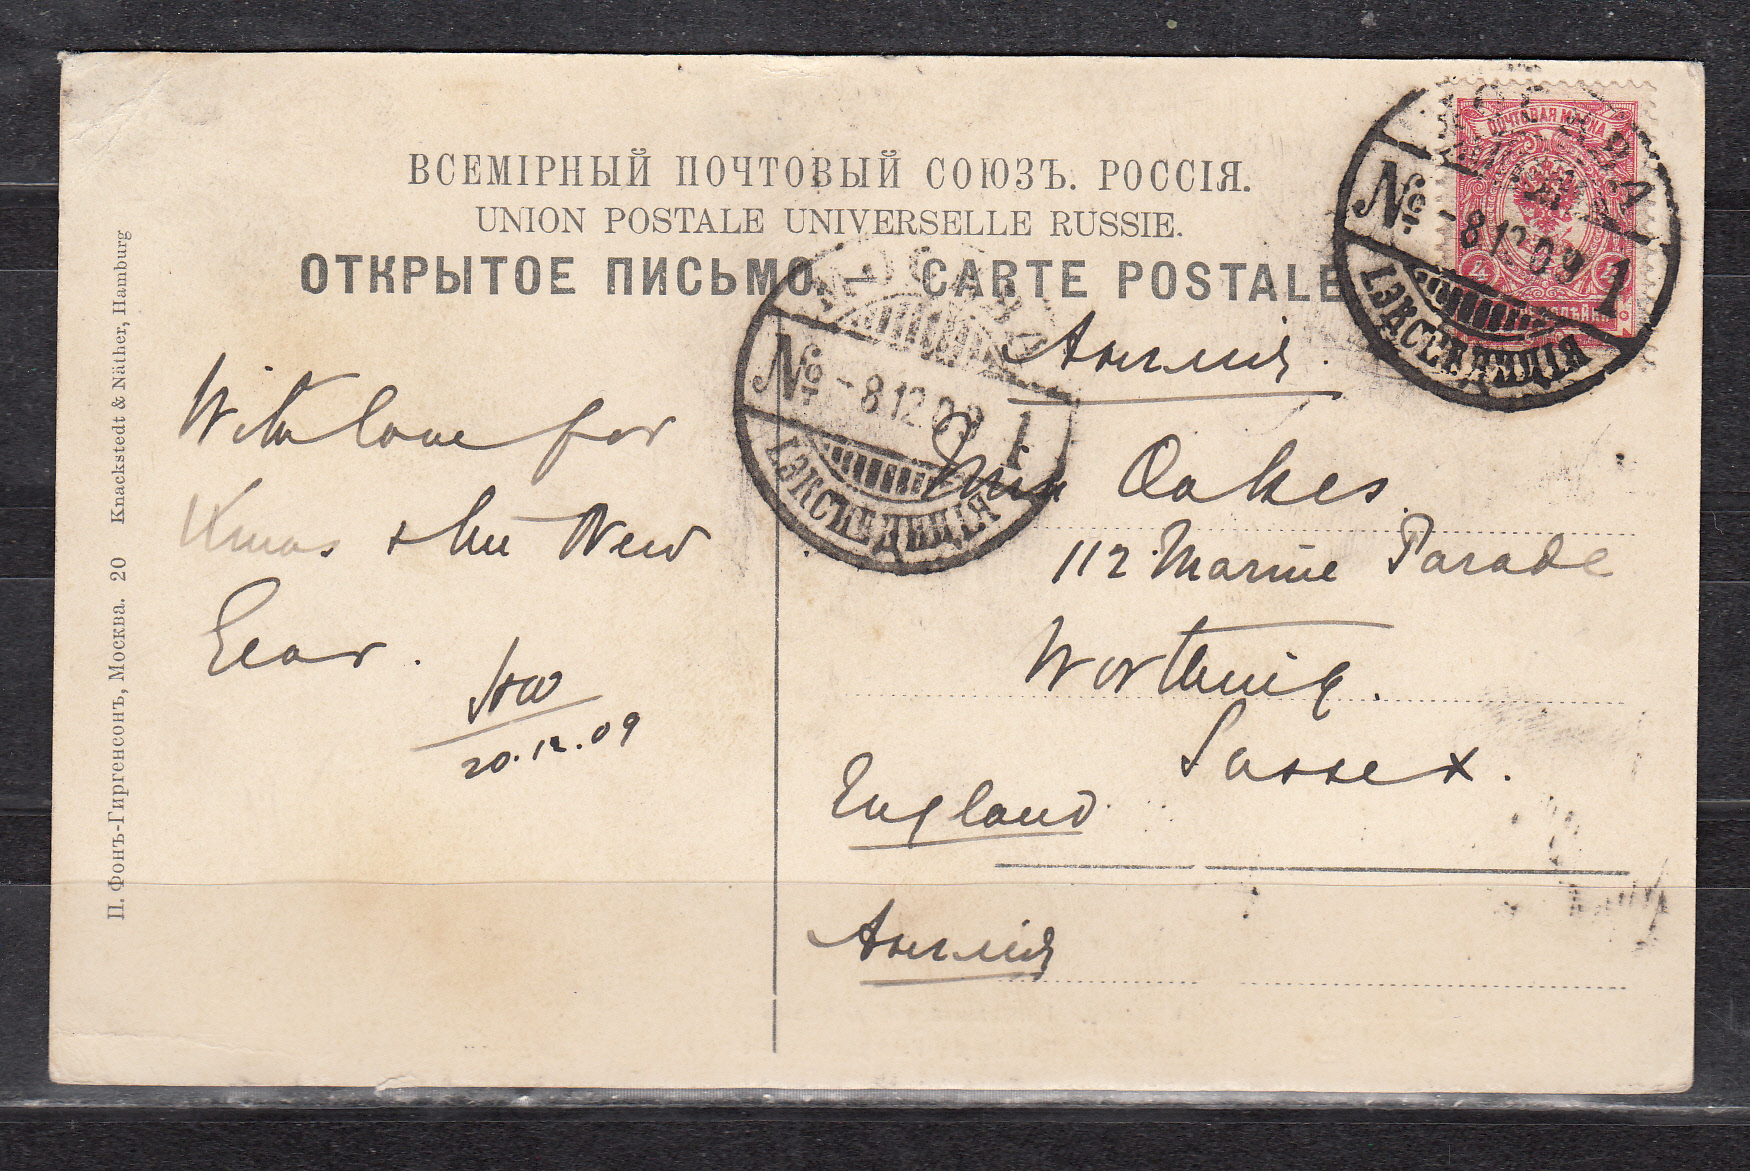 ВСЕМІРНЫЙ ПОЧТОВЫЙ СОЮЗЪ. РОССІЯ.
UNION POSTALE UNIVERSELLE RUSSIE.
ОТКРЫТОЕ ПИСЬМО. — CARTE POSTALE
ПОЧТОВАЯ МАРКА
4 4
№ -8.12.09 1
1 ЭКСПЕДИЦІЯ
№ -8.12.09 1
1 ЭКСПЕДИЦІЯ
With love for
Xmas & the New
Year.
20.12.09
Англія.
Oakes.
112 Marine Parade
Worthing.
Sussex.
England
Англія
П. Фонъ-Гиргенсонъ, Москва. 20 Knackstedt & Näther, Hamburg